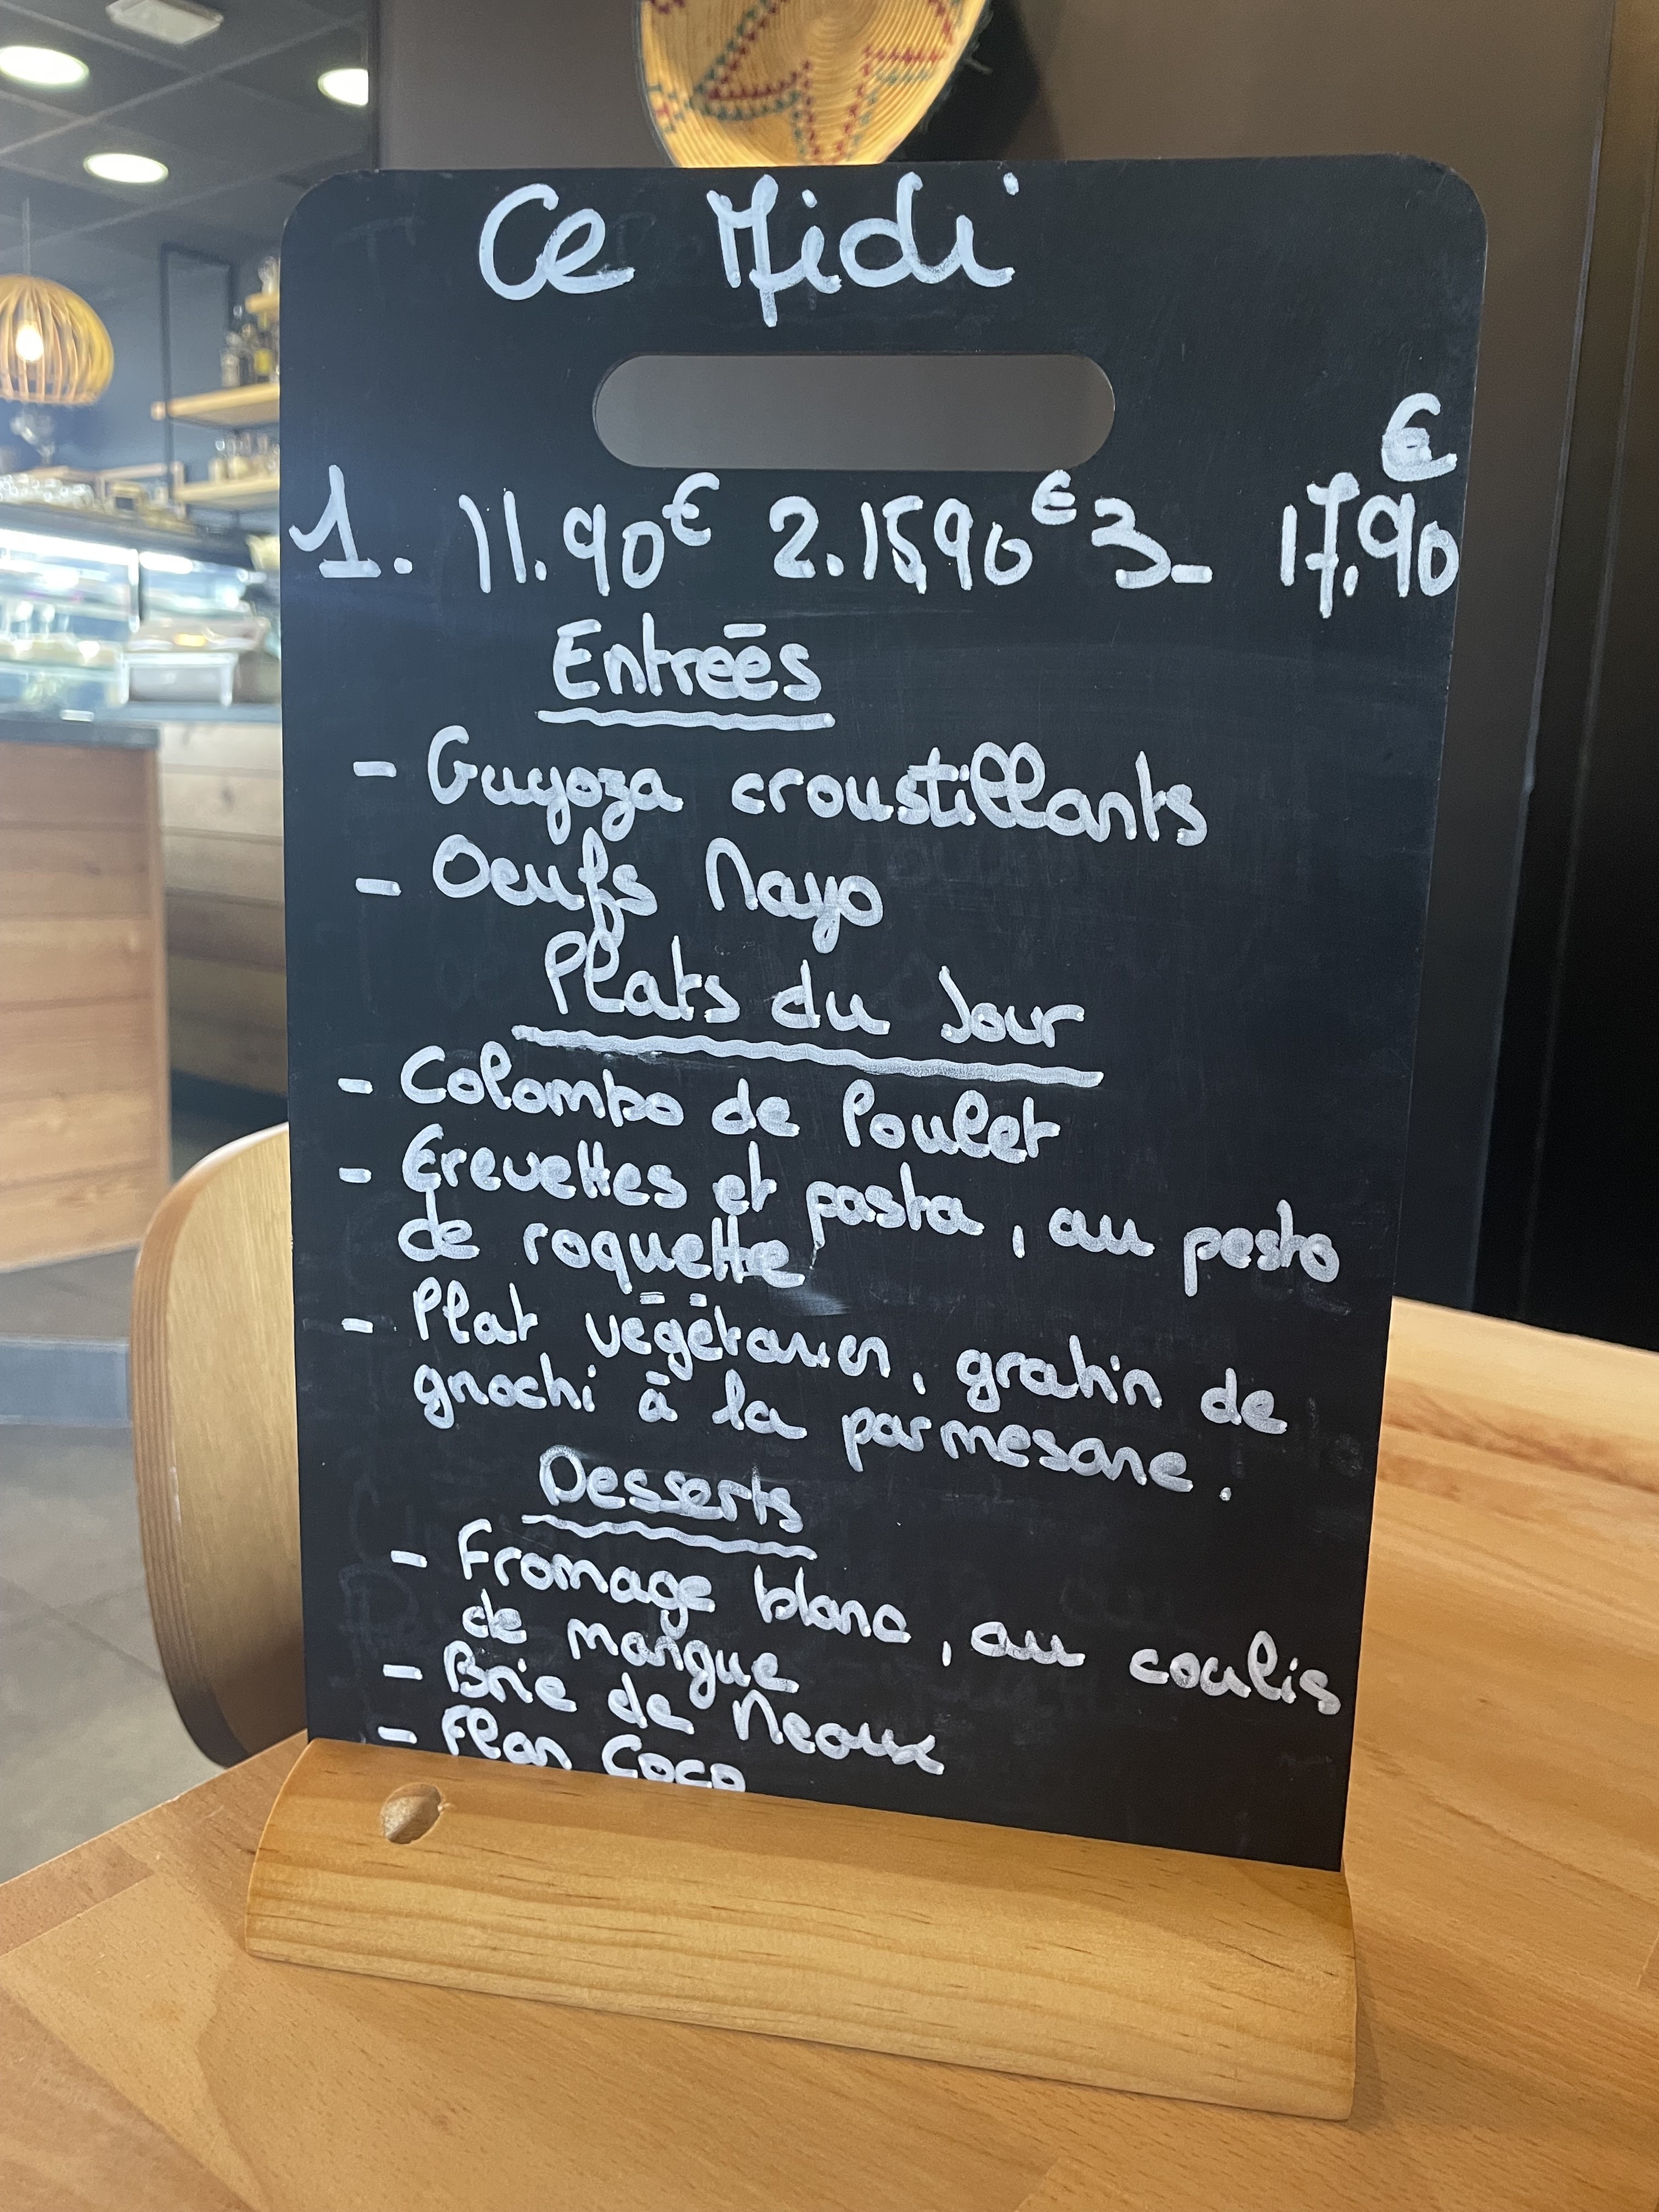 Ce Midi
€
1. 11.90€ 2.15,90€ 3_ 17,90
Entreés
- Guyoza croustillants
- Oeufs Mayo
Plats du Jour
- Colombo de Poulet
- Crevettes et pasta, au pesto
de roquette
- Plat végétarien, gratin de
gnochi à la parmesane.
Desserts
- Fromage blanc, au coulis
de mangue
- Brie de Meaux
- Flan Coco